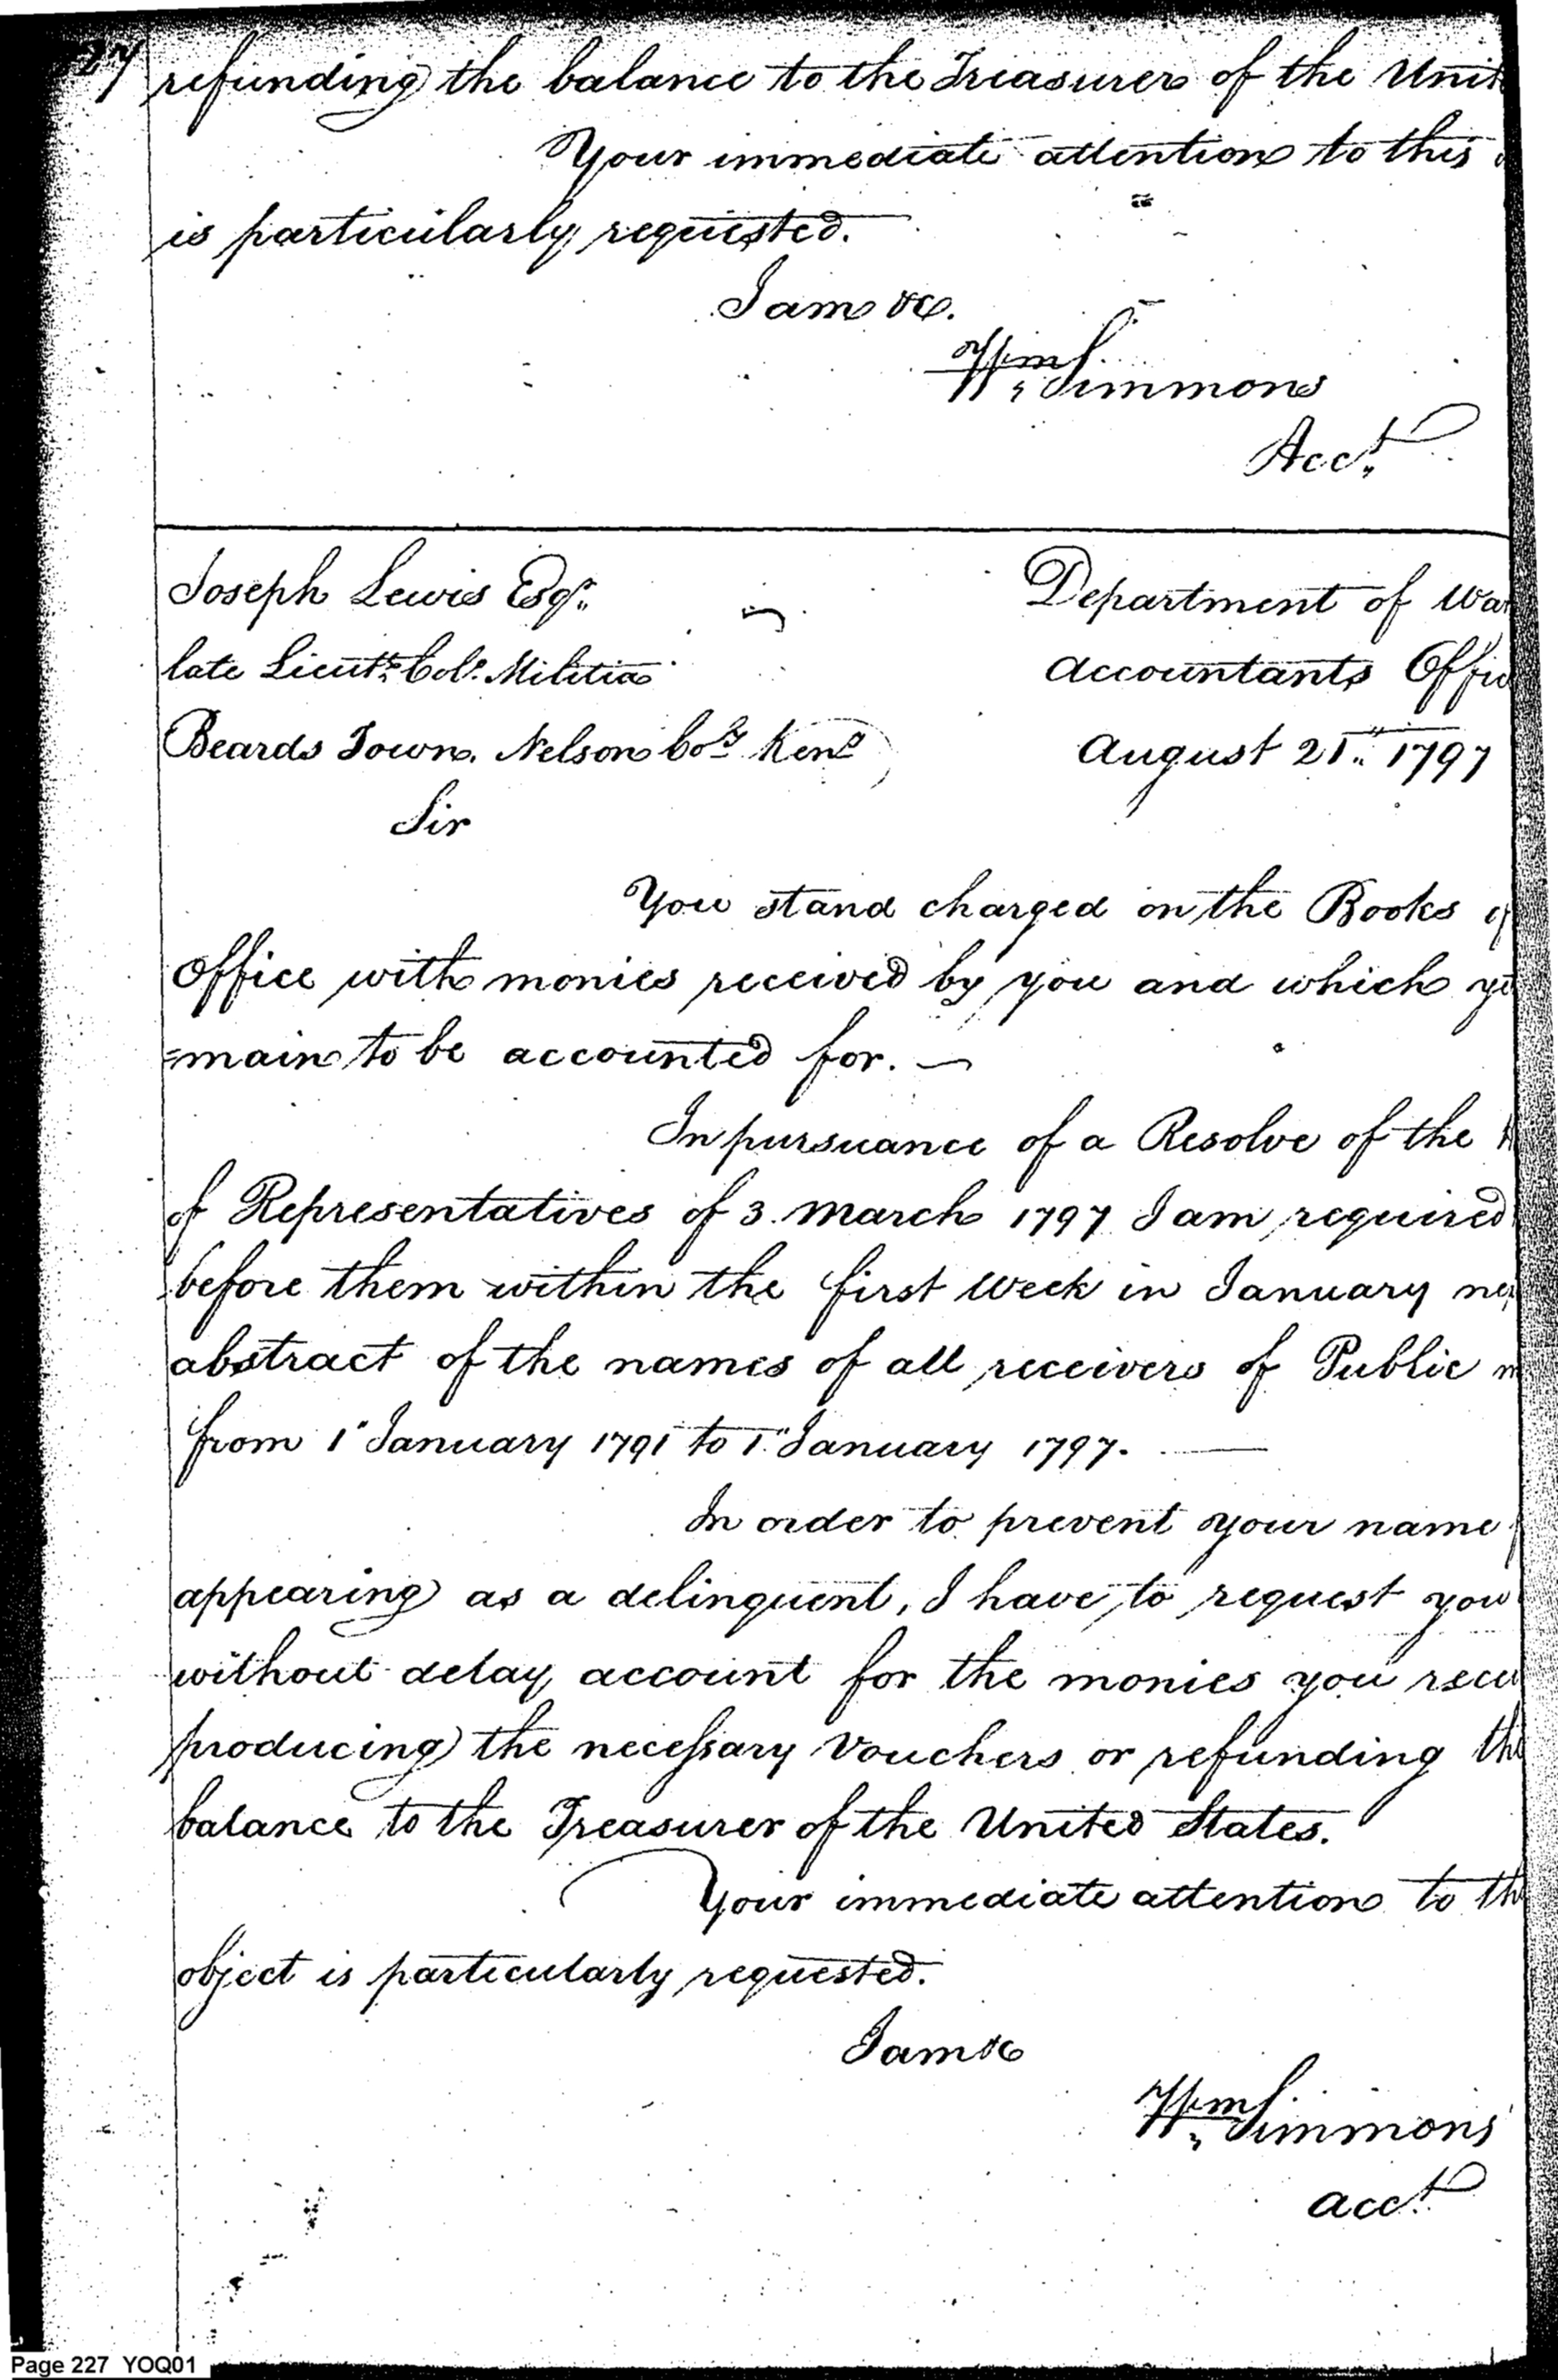 27
refunding the balance to the Treasurer of the Unit
Your immediate attention to this
is particularly requested.
I am &c.
Wm Simmons
Acct.
Joseph Lewis Esqr.
Department of Wa
late Lieutt. Col. Militia
Accountants Offic
Beards Town. Nelson Coy. Keny
August 21st. 1797
Sir
You stand charged on the Books of
Office with monies received by you and which ye
=main to be accounted for. —
In pursuance of a Resolve of the H
of Representatives of 3. March 1797 I am required
before them within the first Week in January nex
abstract of the names of all receivers of Public m
from 1" January 1791 to 1." January 1797. —
In order to prevent your name f
appearing as a delinquent, I have to request you
without delay account for the monies you recei
producing the necessary Vouchers or refunding the
balance to the Treasurer of the United States.
Your immediate attention to th
object is particularly requested.
I am &c
Wm Simmons
acct.
Page 227 YOQ01